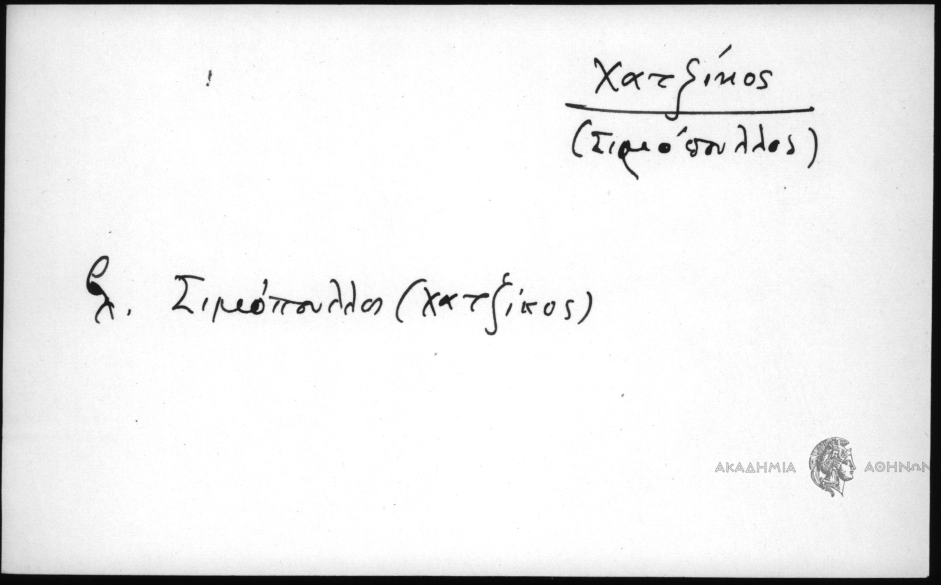 Χατζίκος
(Σιμόπουλλος)
βλ. Σιμόπουλλος (Χατζίκος)
ΑΚΑΔΗΜΙΑ ΑΘΗΝΩΝ